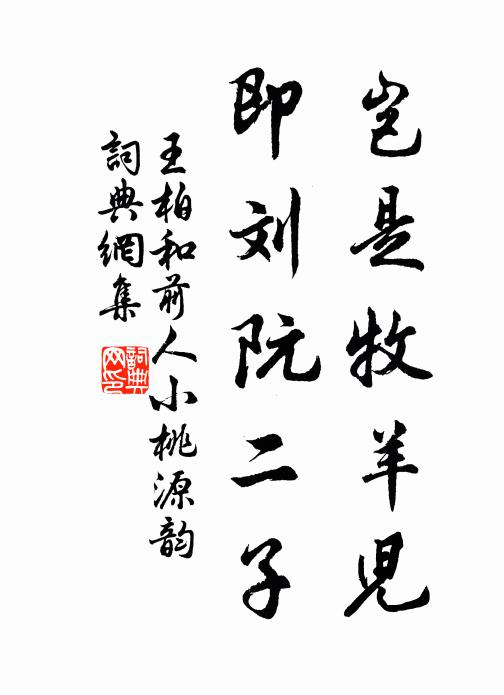 岂是牧羊児
即刘阮二子
王柏和前人小桃源韵
詞典網集
詞典网印